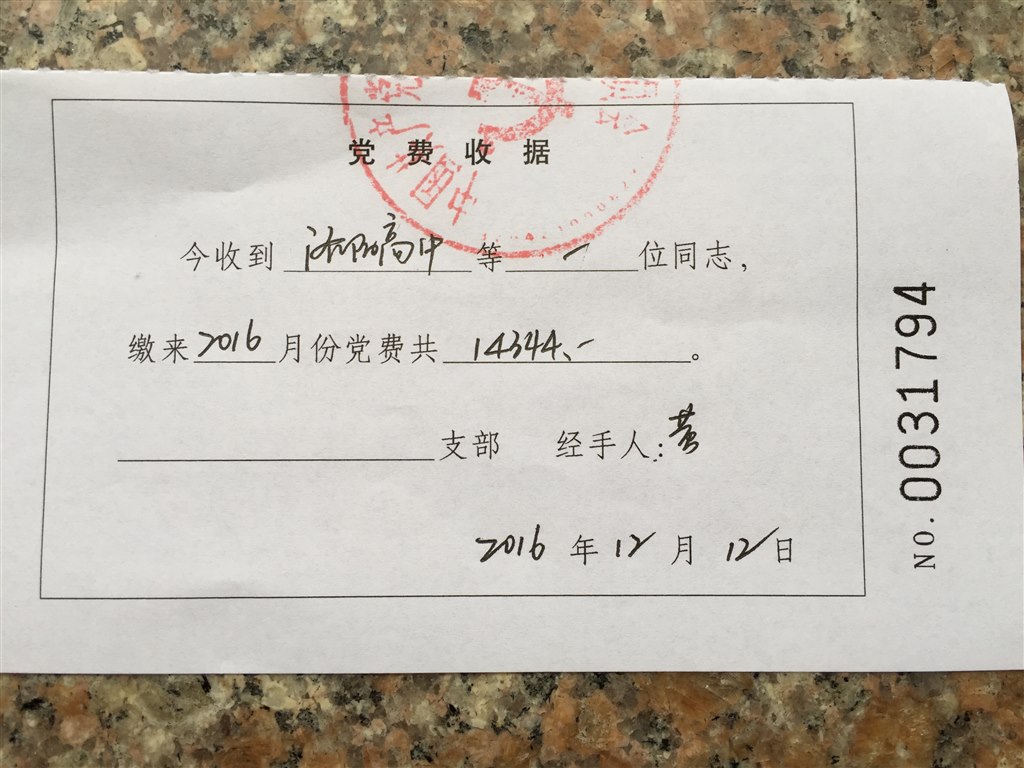 中国共产党
党费收据
今收到 洛阳高中 等 一 位同志，
缴来 2016 月份党费共 14344、一 。
支部 经手人：黄
2016 年 12 月 12 日
NO. 0031794